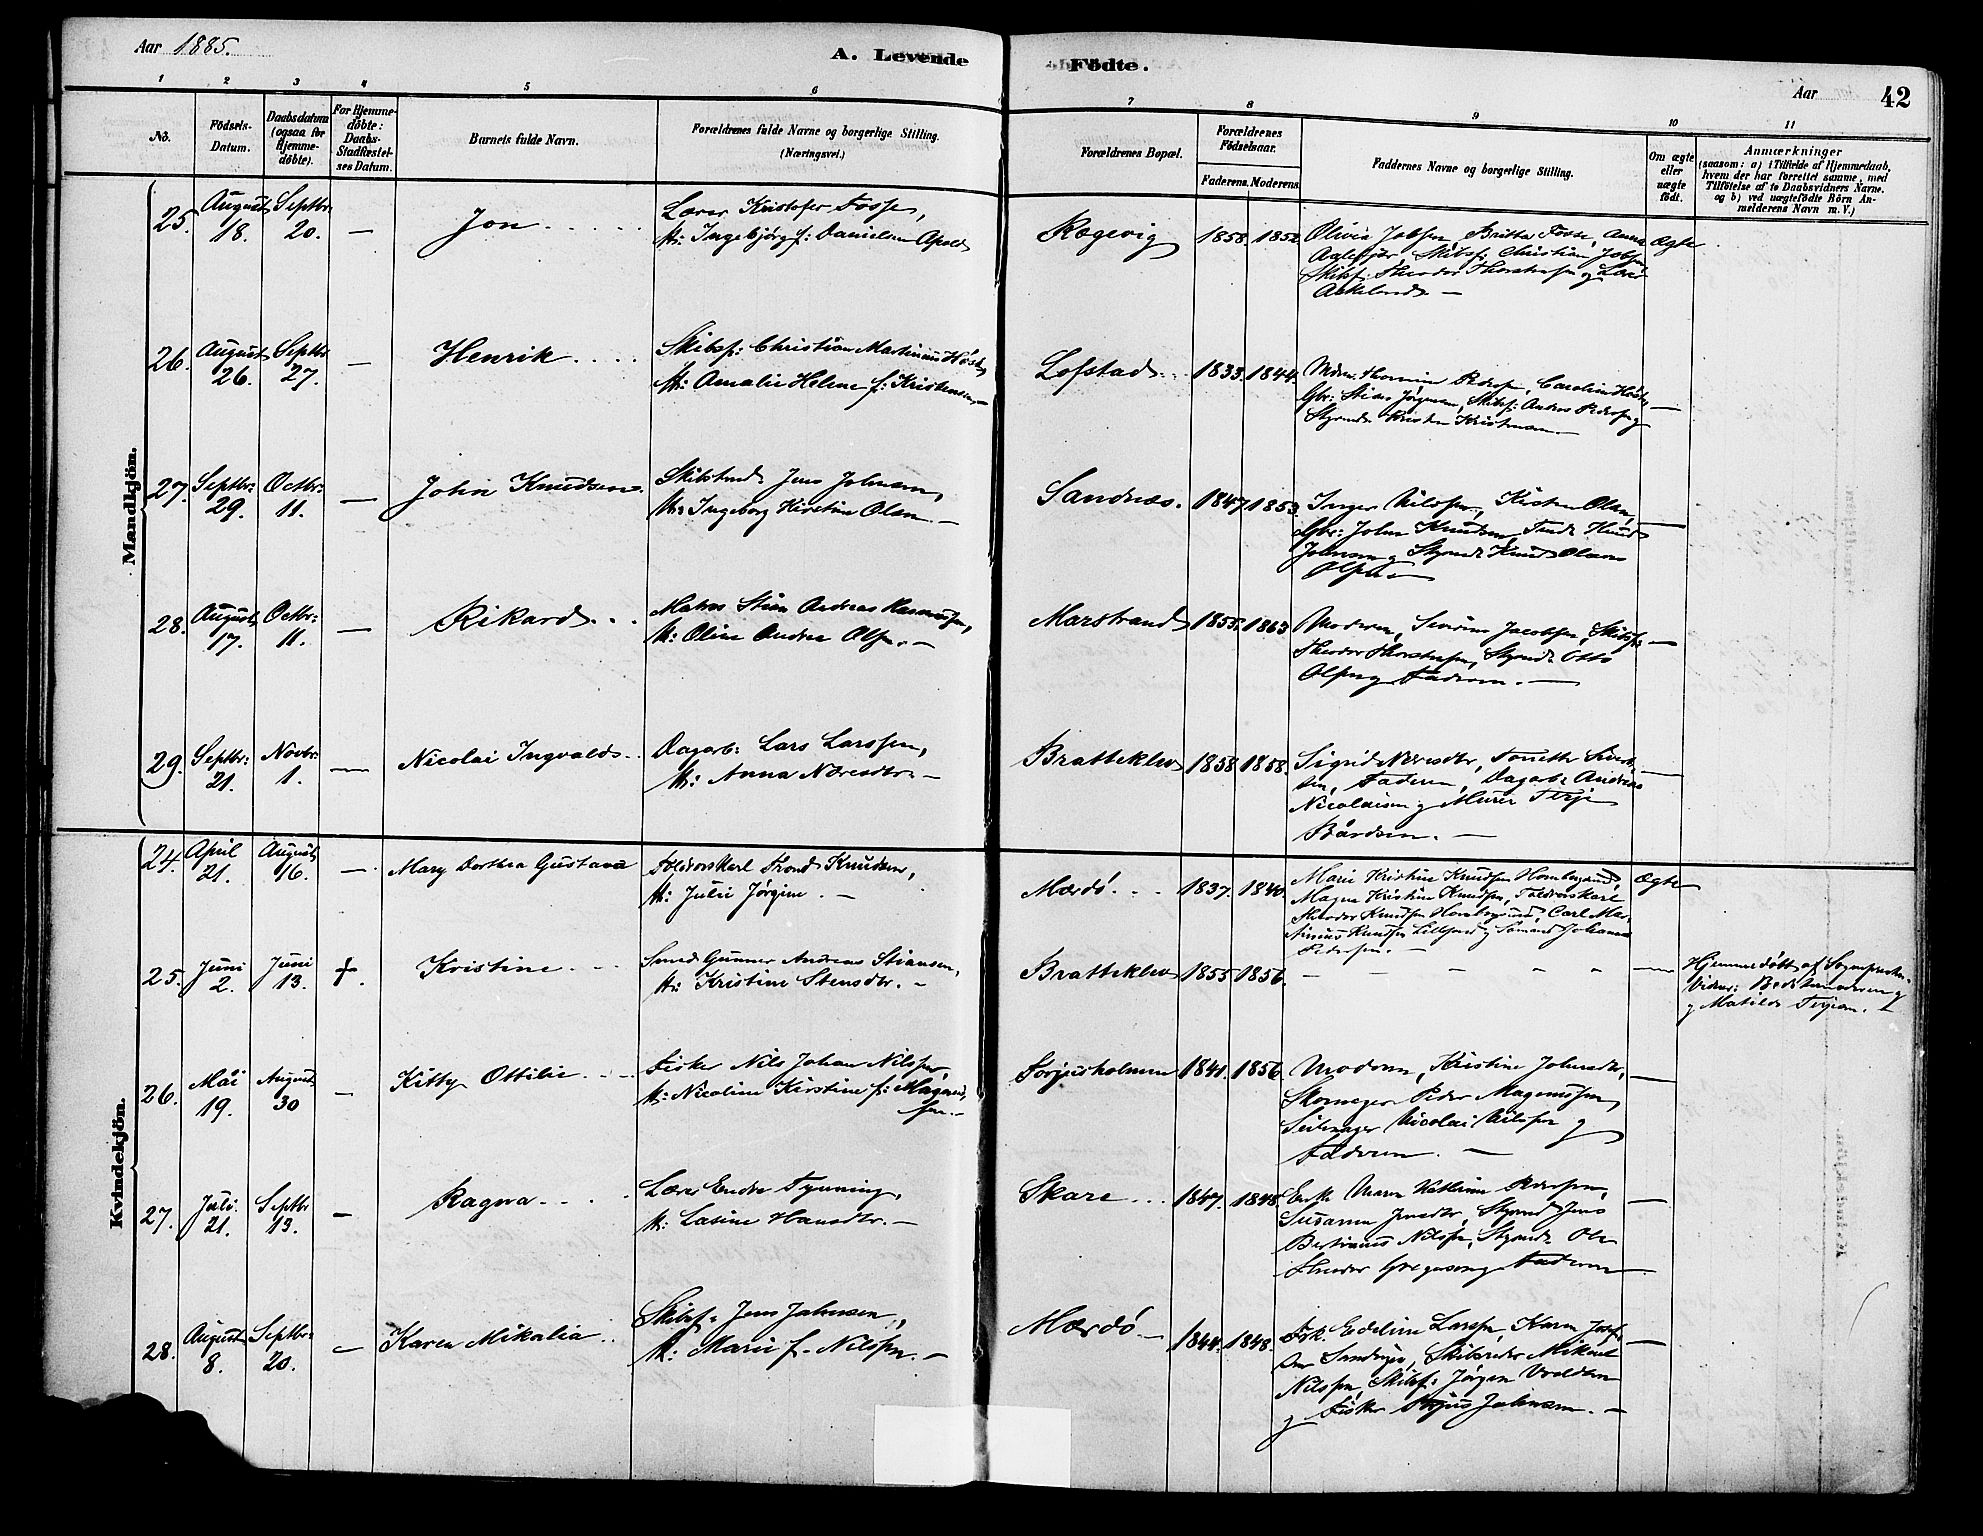 Aar 1885.
A. Levende Fødte.
Aar 42
1 2 3 4 5 6 7 8 9 10 11
No.
Fødsels-Datum.
Daabsdatum (ogsaa for Hjemme-døbte).
For Hjemme-døbte: Daabs-Stadfæstel-ses Datum.
Barnets fulde Navn.
Forældrenes fulde Navne og borgerlige Stilling.
(Næringsvei.)
Forældrenes Bopæl.
Forældrenes Fødselsaar.
Faderens. Moderens.
Faddernes Navne og borgerlige Stilling.
Om ægte eller uægte født.
Anmærkninger
(saasom: a) i Tilfælde af Hjemmedaab,
hvem der har forrettet samme, med
Tilføielse af to Daabsvidners Navne.
og b) ved uægtefødte Börn An-
melderens Navn m. V.)
Mandkjön.
25. August 18. Septbr. 20. — Jon
Lærer Kristofer Fosse,
H: Ingebjørg f: Danielsen
Rægevig 1858. 1852
Olivia Jobsen, Britta Fosse, Anna
Skibsf: Christian Jobsen,
Skibsf: Theodor Thorstensen og Lærer
Askeland —
Ægte
26. August 26. Septbr 27. — Henrik
Skibsf: Christian Martinius Høst,
H: Amalie Helene f: Kristensen. —
Lofstad 1833. 1844.
Pedersen, Caroline Høst,
Gbr: Stian Jørgensen, Skibsf: Anders Pedersen og
Styrmd. Kristen Kristensen. —
—
27. Septbr: 29. Octbr: 11. — John Knudsen.
Jens Johnsen,
H: Ingeborg Kirstine Olsen. —
Sandnæs. 1847 1853.
Inger Nilssen, Kirsten Olsen,
Gbr: John Knudsen, Knud
Johnsen og Styrmd: Knud
Olsen —
—
28. August 17. Octbr: 11. — Rikard
Matros Stian Andreas Rasmussen,
H: Oline Andrea Olsen. —
Marstrand 1855. 1863
Moderen, Severine Jacobsen, Skibsf:
Theodor Thorstensen, Styrmd: Otto
Olsen og Faderen. —
—
29. Septbr: 21. Novbr: 1. — Nicolai Ingvald
Dagarb: Lars Larssen,
H: Anna Næresdtr. —
Bratteklev 1858 1858.
Sigrid Næresdtr, Tonette Sivert-
sen, Faderen, Dagarb: Andreas
Nicolaisen og Murer Terje
Bårdsen. —
—
Kvindekjön.
24. April 21. August 16. — Mary Dorthea Gustava
Toldrorskarl Trond Knudsen,
H: Julie Jørgine. —
Mærdö. 1837. 1840.
Marie Kristine Knudsen Hombergsund,
Magna Kristine Knudsen, Toldrorskarl
Theodor Knudsen Hombergsund, Carl Mar-
tinius Knudsen og Sømand Johannes
Pedersen. —
Ægte
25. Juni 2. Juni 13. +. Kristine
Smed Gunner Andreas Stiansen,
H: Kristine Stensdtr. —
Bratteklev 1855 1856.
— — — — —
Hjemmedøbt af Sognepresten.
Vidner:
og Matilde Terjesen. —
26. Mai 19. August 30 — Kitty Ottilie
Fisker Nils Johan Nilssen,
H: Nicoline Kirstine f: Magnus-
sen. —
Torjusholmen 1841. 1856.
Moderen, Kristine Johnsdtr,
Skomager Peder Magnussen,
Seilmager Nicolai Nilssen og
Faderen. —
—
27. Juli 21. Septbr 13. — Ragna
Lærer Endre Tynning,
H: Lasine Hansdtr. —
Skare 1847. 1848
Enke Maren Kathrine Pedersen,
Susanne Jensdtr, Styrmd Jens
Bertinius Nilssen, Styrmd: Ole
Theodor Gregersen og Faderen
—
28. August 8. Septbr: 20. — Karen Mikalia
Skibsf: Jens Johnsen,
H: Marie f. Nilssen. —
Mærdö — 1844. 1848.
Frk. Edeline Larssen, Karen
Skibsreder Mikael
Nilssen, Skibsf: Jørgen
og Fisker Torjus Johnsen. —
—